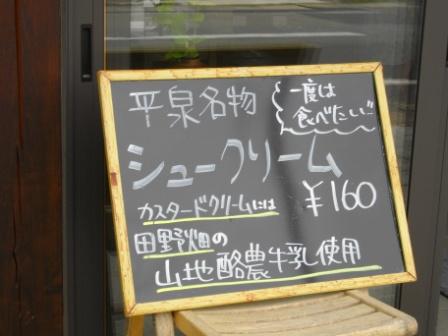 平泉名物
一度は
食べたい!!
シュークリーム
カスタードクリームには
¥160
田野畑の
山地酪農牛乳使用